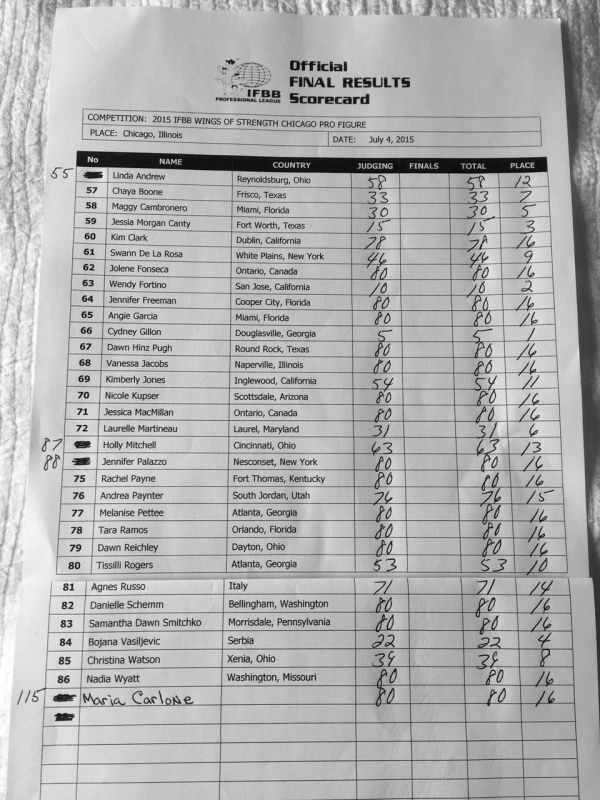 IFBB
PROFESSIONAL LEAGUE
Official
FINAL RESULTS
Scorecard
COMPETITION: 2015 IFBB WINGS OF STRENGTH CHICAGO PRO FIGURE
PLACE: Chicago, Illinois DATE: July 4, 2015
No NAME COUNTRY JUDGING FINALS TOTAL PLACE
55 Linda Andrew Reynoldsburg, Ohio 58 58 12
57 Chaya Boone Frisco, Texas 33 33 7
58 Maggy Cambronero Miami, Florida 30 30 5
59 Jessia Morgan Canty Fort Worth, Texas 15 15 3
60 Kim Clark Dublin, California 78 78 16
61 Swann De La Rosa White Plains, New York 46 46 9
62 Jolene Fonseca Ontario, Canada 80 80 16
63 Wendy Fortino San Jose, California 10 10 2
64 Jennifer Freeman Cooper City, Florida 80 80 16
65 Angie Garcia Miami, Florida 80 80 16
66 Cydney Gillon Douglasville, Georgia 5 5 1
67 Dawn Hinz Pugh Round Rock, Texas 80 80 16
68 Vanessa Jacobs Naperville, Illinois 80 80 16
69 Kimberly Jones Inglewood, California 54 54 11
70 Nicole Kupser Scottsdale, Arizona 80 80 16
71 Jessica MacMillan Ontario, Canada 80 80 16
72 Laurelle Martineau Laurel, Maryland 31 31 6
87 Holly Mitchell Cincinnati, Ohio 63 63 13
88 Jennifer Palazzo Nesconset, New York 80 80 16
75 Rachel Payne Fort Thomas, Kentucky 80 80 16
76 Andrea Paynter South Jordan, Utah 76 76 15
77 Melanise Pettee Atlanta, Georgia 80 80 16
78 Tara Ramos Orlando, Florida 80 80 16
79 Dawn Reichley Dayton, Ohio 80 80 16
80 Tissilli Rogers Atlanta, Georgia 53 53 10
81 Agnes Russo Italy 71 71 14
82 Danielle Schemm Bellingham, Washington 80 80 16
83 Samantha Dawn Smitchko Morrisdale, Pennsylvania 80 80 16
84 Bojana Vasiljevic Serbia 22 22 4
85 Christina Watson Xenia, Ohio 39 39 8
86 Nadia Wyatt Washington, Missouri 80 80 16
115 Maria Carlone 80 80 16